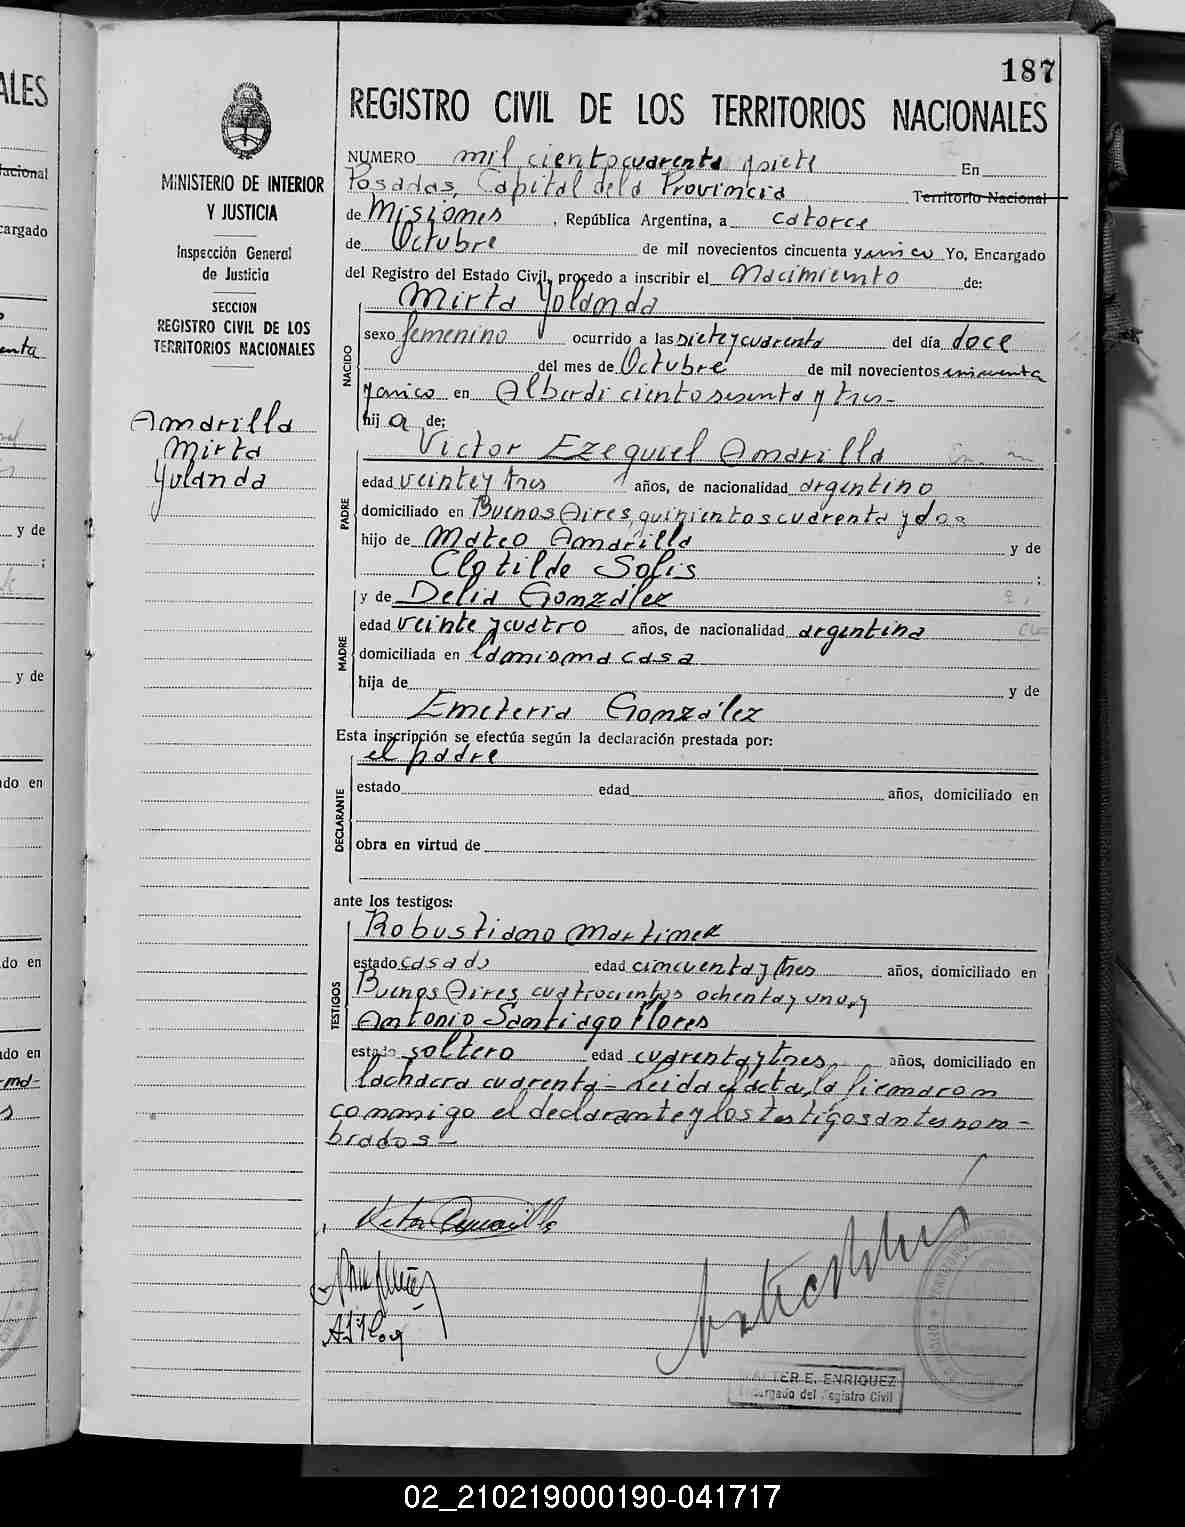 187
REGISTRO CIVIL DE LOS TERRITORIOS NACIONALES
MINISTERIO DE INTERIOR
Y JUSTICIA
Inspección General
de Justicia
SECCION
REGISTRO CIVIL DE LOS
TERRITORIOS NACIONALES
Amarilla
Mirta
Yolanda
NUMERO mil ciento cuarenta y siete En
Posadas, Capital de la Provincia Territorio Nacional
de Misiones, República Argentina, a catorce
de Octubre de mil novecientos cincuenta y unico Yo, Encargado
del Registro del Estado Civil, procedo a inscribir el Nacimiento de:
Mirta Yolanda
NACIDO
sexo femenino ocurrido a las siete y cuarenta del día doce
del mes de Octubre de mil novecientos cincuenta
y unico en Alberdi ciento sesenta y tres-
hij a de:
Victor Ezequiel Amarilla
PADRE
edad veinte y tres años, de nacionalidad argentino
domiciliado en Buenos Aires, quinientos cuarenta y dos
hijo de Mateo Amarilla y de
Clotilde Solis ;
y de Delia González
MADRE
edad veinte y cuatro años, de nacionalidad argentina
domiciliada en la misma casa
hija de y de
Emeteria González
Esta inscripción se efectúa según la declaración prestada por:
el padre
DECLARANTE
estado edad años, domiciliado en
obra en virtud de
ante los testigos:
Robustiano Martinez
TESTIGOS
estado casado edad cincuenta y tres años, domiciliado en
Buenos Aires cuatrocientos ochenta y uno, y
Antonio Santiago Flores
estado soltero edad cuarenta y tres, años, domiciliado en
Lachara cuarenta - Leida el acta, la firmaron
conmigo el declarante y los testigos antes nom-
brados-
Victor Amarilla
WALTER E. ENRIQUEZ
Encargado del Registro Civil
02_210219000190-041717